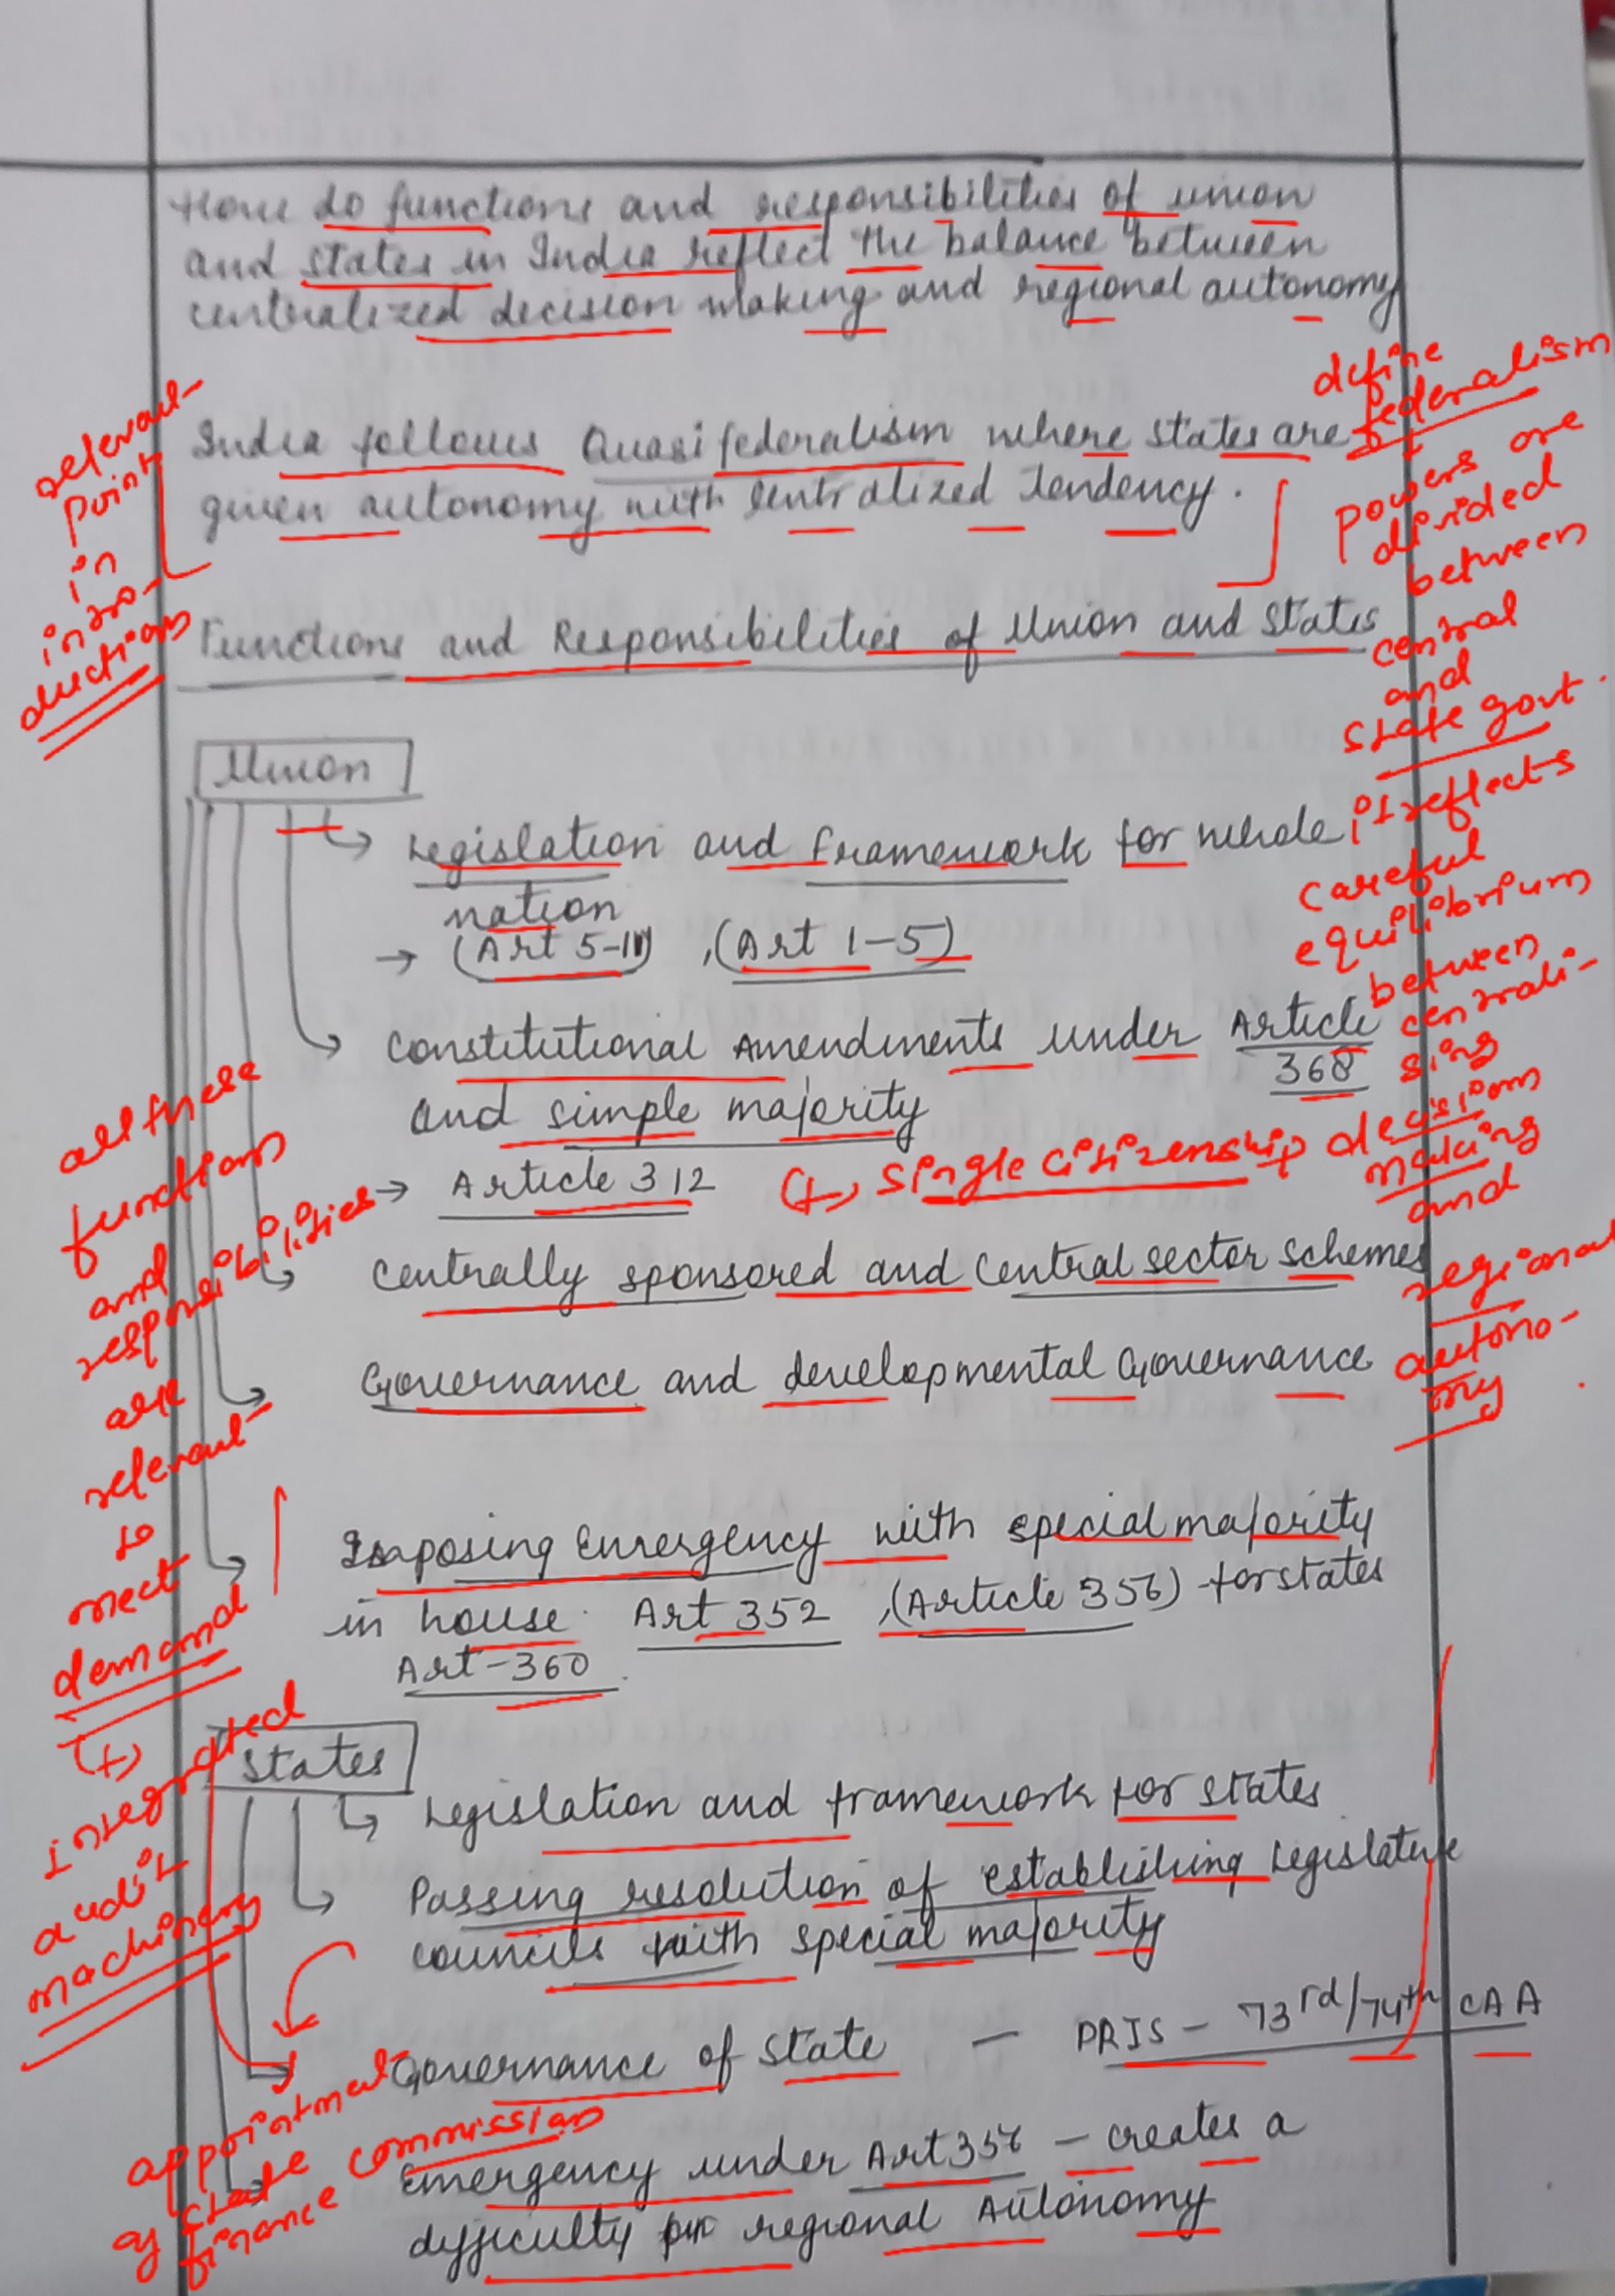 How do functions and responsibilities of union
and states in India reflect the balance between
centralized decision making and regional autonomy
India follows Quasi federalism where states are
given autonomy with Centralized Tendency.
relevant
point
in
intro-
duction
define
federalism
powers are
divided
between
central
and
state govt.
it reflects
careful
equilibrium
between
centrali-
sing
decision
making
and
regional
autono-
my
Functions and Responsibilities of Union and States
Union
Legislation and framework for whole
nation
→ (Art 5-11), (Art 1-5)
Constitutional Amendments under Article
368
and simple majority
→ Article 312
(+) single citizenship
Centrally sponsored and Central sector schemes
Governance and developmental Governance
Imposing Emergency with special majority
in house. Art 352, (Article 356) - for states
Art-360.
all these
function
and
responsibilities
are
relevant
to
meet
demand
(+)
Integrated
audit
machinery
States
Legislation and framework for states
Passing resolution of establishing Legislative
councils with special majority
Governance of State - PRIS - 73rd/74th CAA
appointment
of state
finance commission
Emergency under Art 356 - creates a
difficulty for regional Autonomy